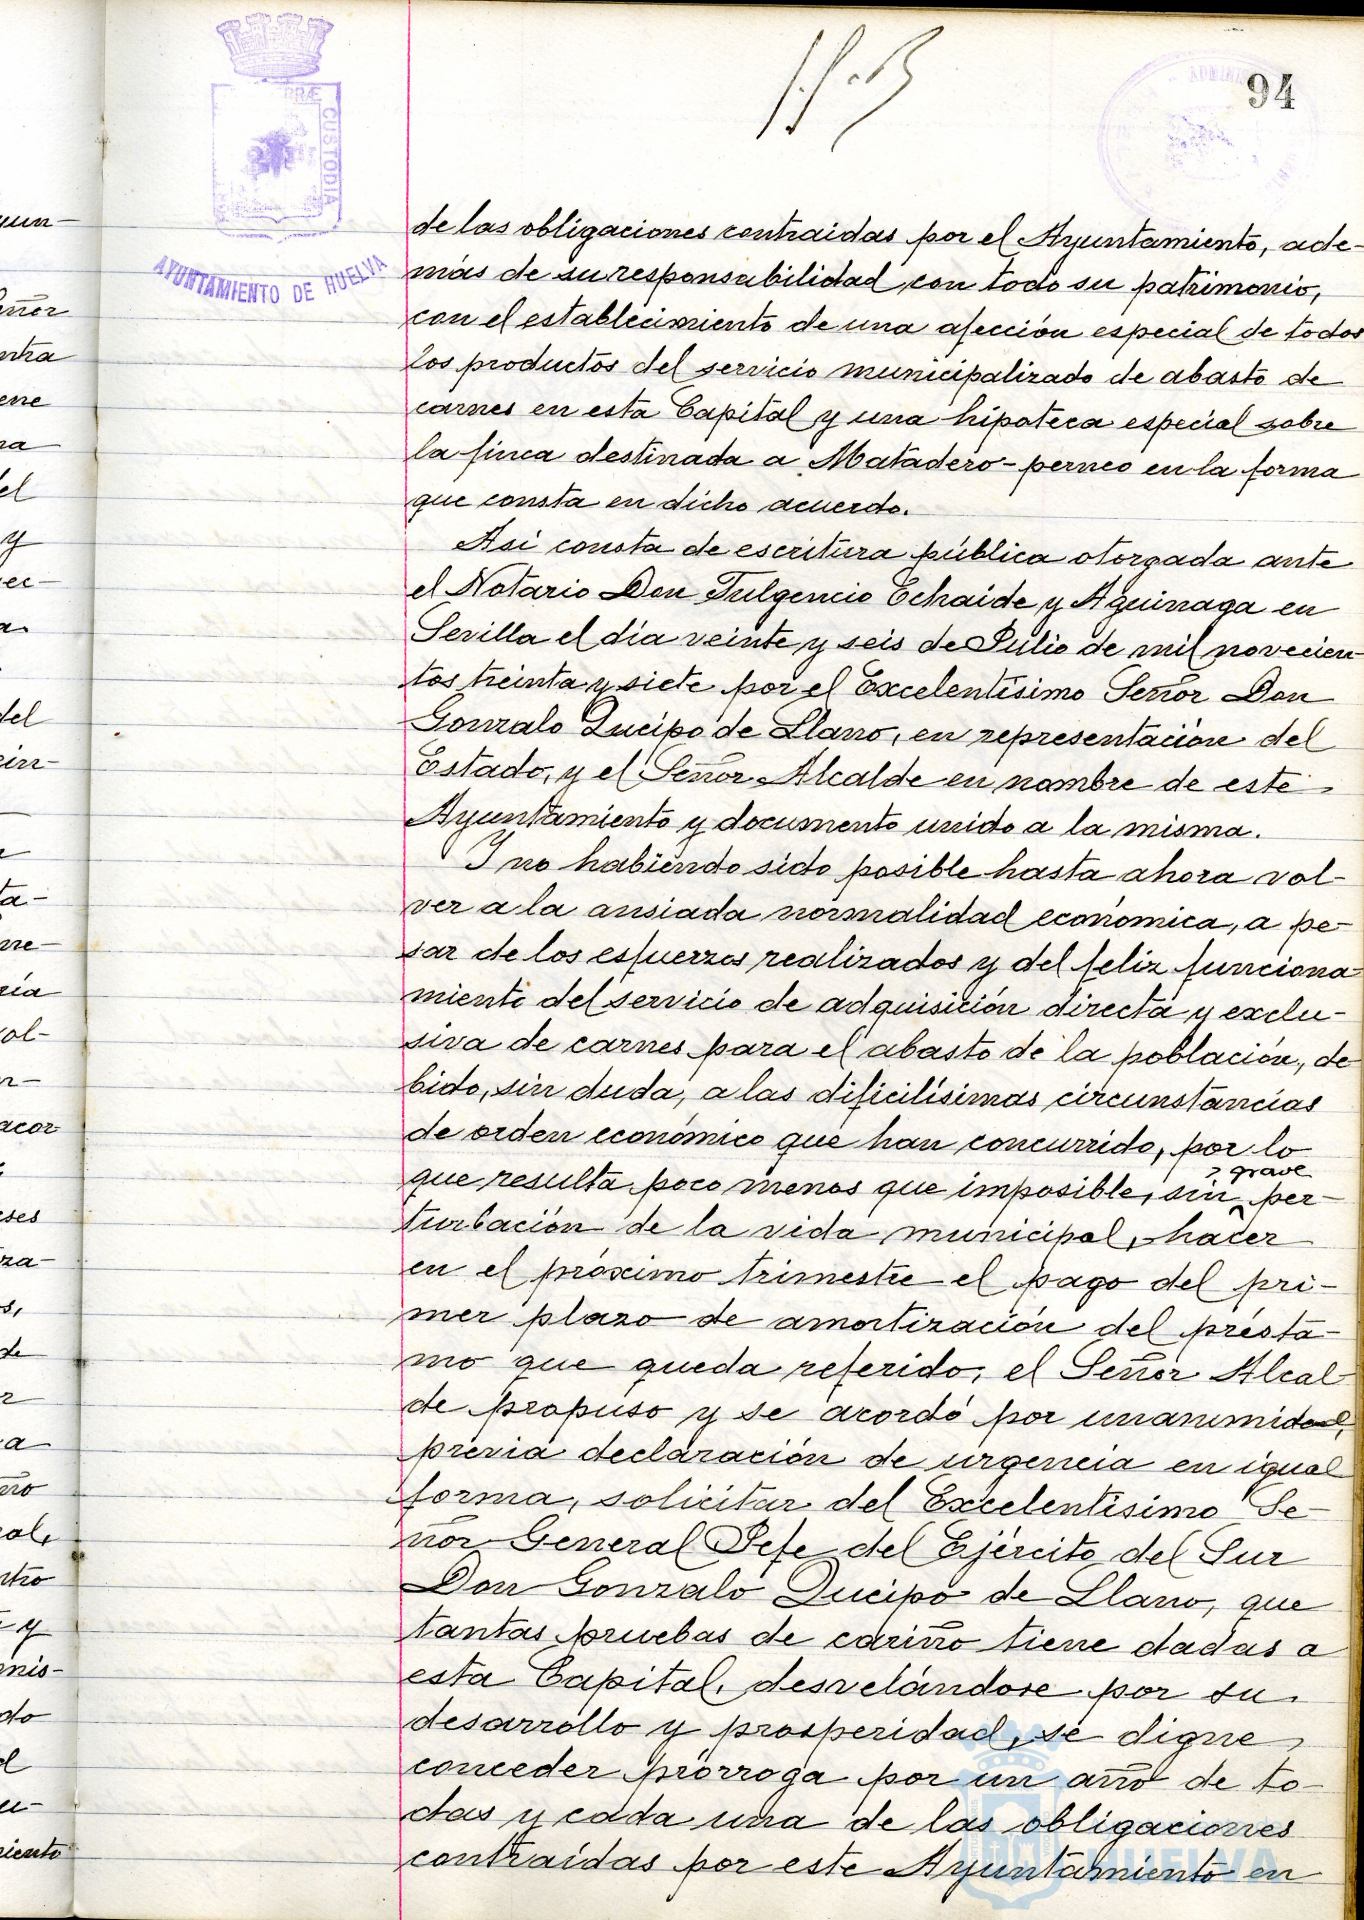 94
AYUNTAMIENTO DE HUELVA
CUSTODIA
de las obligaciones contraidas por el Ayuntamiento, ade-
más de su responsabilidad con todo su patrimonio,
con el establecimiento de una afección especial de todos
los productos del servicio municipalizado de abasto de
carnes en esta Capital y una hipoteca especial sobre
la finca destinada a Matadero-perneo en la forma
que consta en dicho acuerdo.
Asi consta de escritura pública otorgada ante
el Notario Don Fulgencio Echaide y Aguinaga en
Sevilla el día veinte y seis de Julio de mil novecien-
tos treinta y siete por el Excelentísimo Señor Don
Gonzalo Queipo de Llano, en representación del
Estado, y el Señor Alcalde en nombre de este
Ayuntamiento y documento unido a la misma.
Y no habiendo sido posible hasta ahora vol-
ver a la ansiada normalidad económica, a pe-
sar de los esfuerzos realizados y del feliz funciona-
miento del servicio de adquisición directa y exclu-
siva de carnes para el abasto de la población, de
bido, sin duda, a las dificilísimas circunstancias
de orden económico que han concurrido, por lo
que resulta poco menos que imposible, sin grave per-
turbación de la vida municipal, hacer
en el próximo trimestre el pago del pri-
mer plazo de amortización del présta-
mo que queda referido, el Señor Alcal-
de propuso y se acordó por unanimidad,
previa declaración de urgencia en igual
forma, solicitar del Excelentísimo Se-
ñor General Jefe del Ejército del Sur
Don Gonzalo Queipo de Llano, que
tantas pruebas de cariño tiene dadas a
esta Capital, desvelándose por su
desarrollo y prosperidad, se digne
conceder prórroga por un año de to-
das y cada una de las obligaciones
contraídas por este Ayuntamiento en
HUELVA